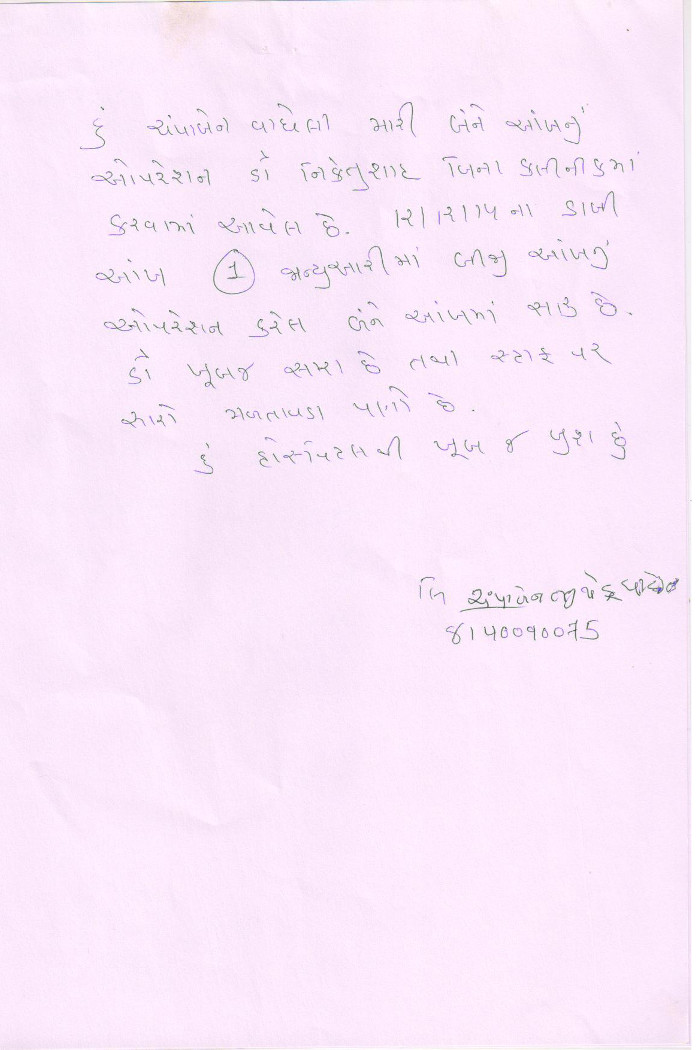 હું ચંપાબેન વાઘેલા મારી બંને આંખનું
ઓપરેશન ડૉ નિકેતુશાહ જિના કલીનીકમાં
કરવામાં આવેલ છે. ના ડાબી
આંખ 1 જાન્યુઆરીમાં બીજી આંખનું
ઓપરેશન કરેલ બંને આંખમાં સારૂ છે.
ડૉ ખૂબજ સારા છે તથા સ્ટાફ પર
સારો મળતાવડા છે.
હું હોસ્પિટલથી ખૂબ જ ખુશ છું
લિ ચંપાબેન
8140090075